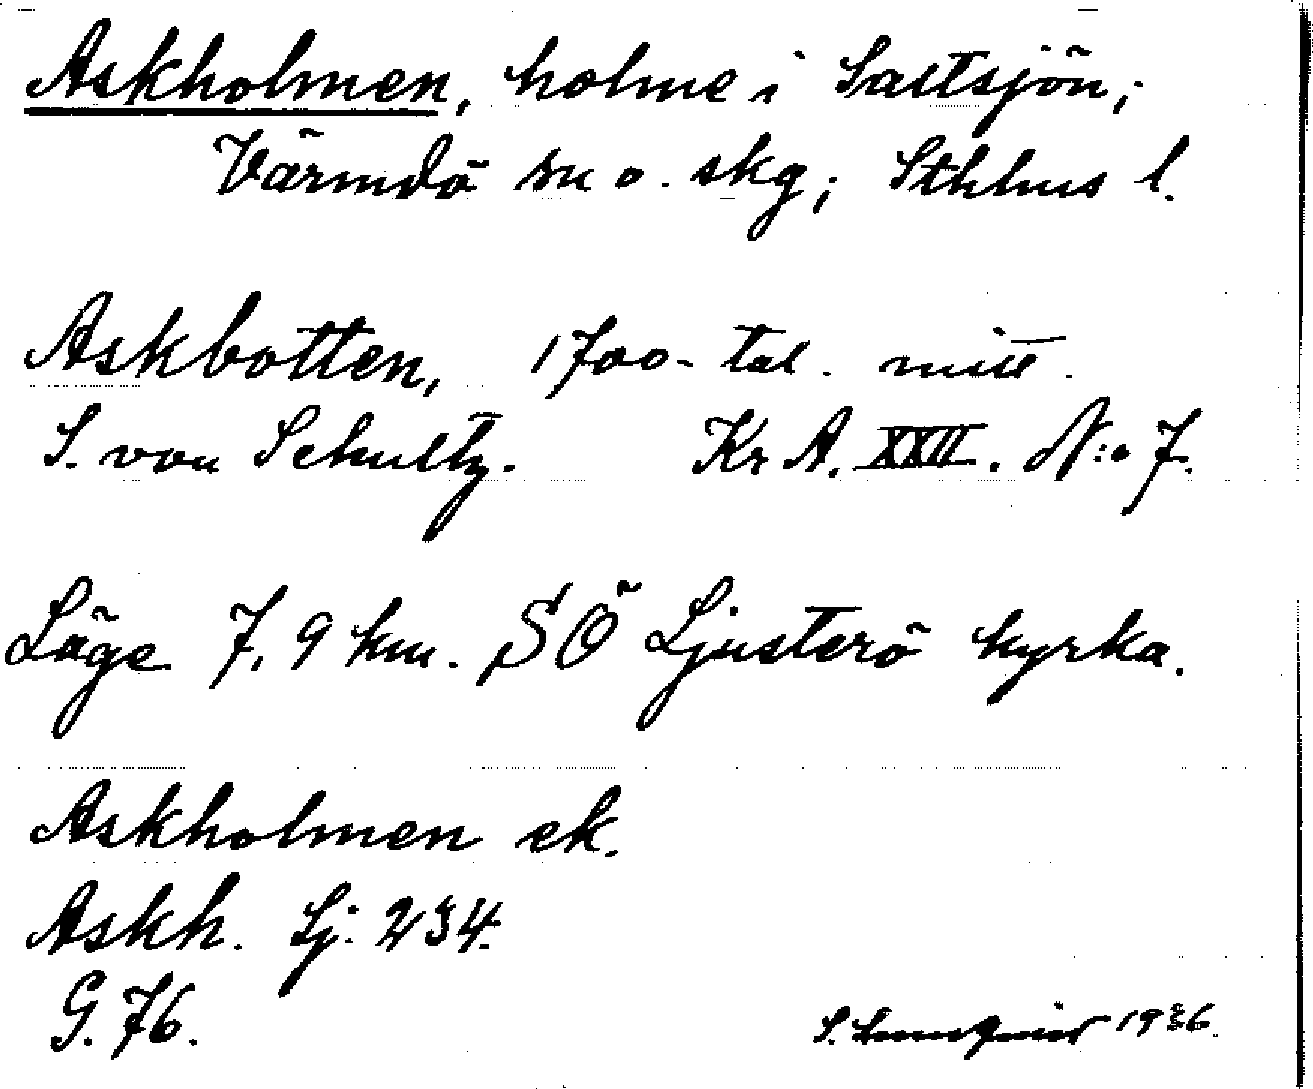 Askholmen, holme i Saltsjön;
Värmdö sn o. skg; Sthlms l.
Askbotten, 1700-tal. mitt.
S. von Schultz. Kr A. XXII. N:o 7.
Läge 7,9 km. SÖ Ljusterö kyrka.
Askholmen ek.
Askh. Sj. 234.
G. 76.
S. 1936.